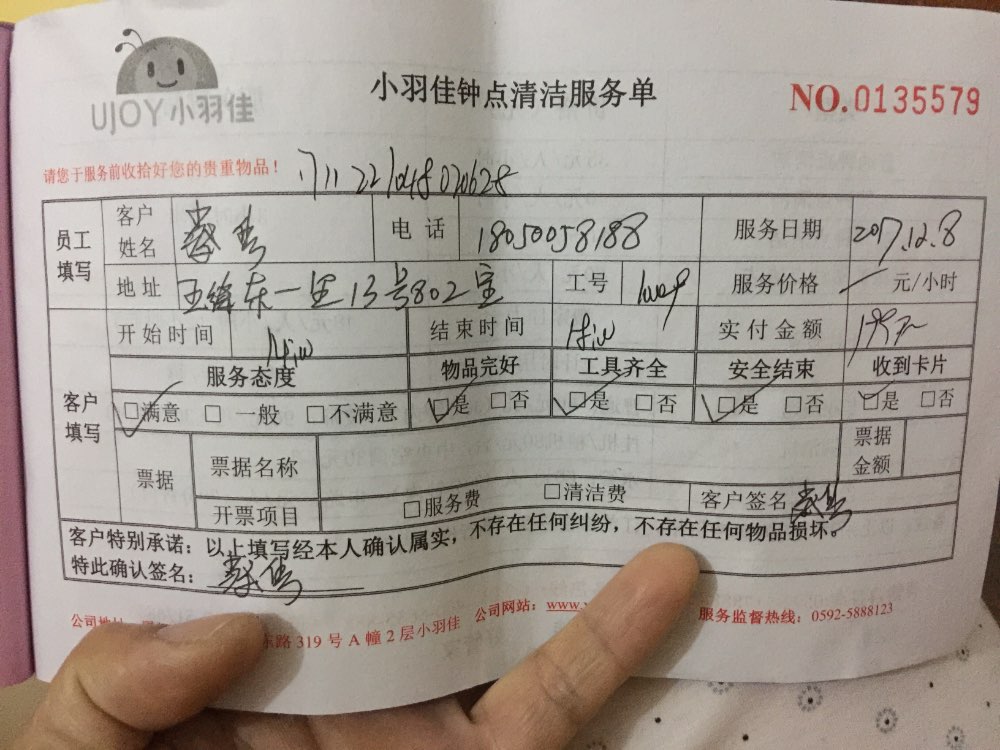 UJOY小羽佳
小羽佳钟点清洁服务单
NO.0135579
请您于服务前收拾好您的贵重物品！
员工填写
客户姓名
电话 18050058188
服务日期 2017.12.8
地址 东一里13号802室
工号
服务价格 元/小时
客户填写
开始时间
结束时间
实付金额
服务态度 物品完好 工具齐全 安全结束 收到卡片
□满意 □一般 □不满意 □是 □否 □是 □否 □是 □否 □是 □否
票据
票据名称
票据金额
开票项目 □服务费 □清洁费 客户签名
客户特别承诺：以上填写经本人确认属实，不存在任何纠纷，不存在任何物品损坏。
特此确认签名：
东路319号A幢2层小羽佳 公司网站：www. 服务监督热线：0592-5888123